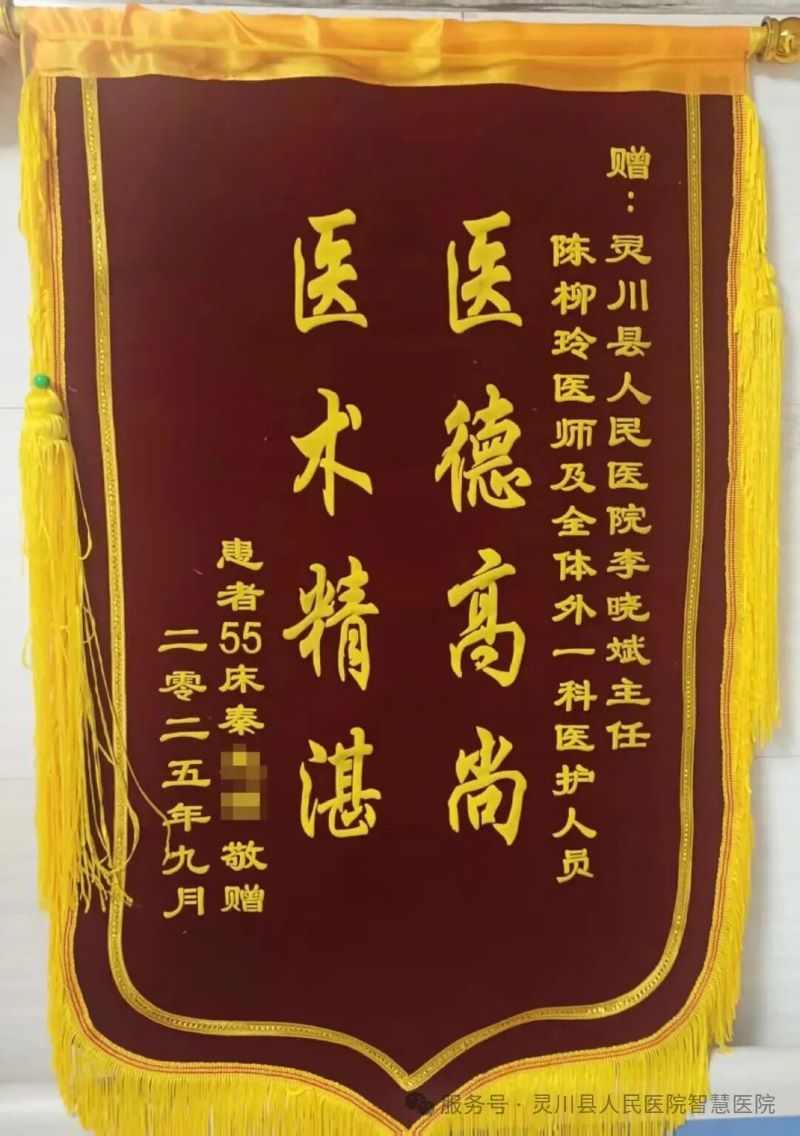 赠：灵川县人民医院李晓斌主任
陈柳玲医师及全体外一科医护人员
医德高尚
医术精湛
患者55床秦 敬赠
二零二五年九月
服务号·灵川县人民医院智慧医院